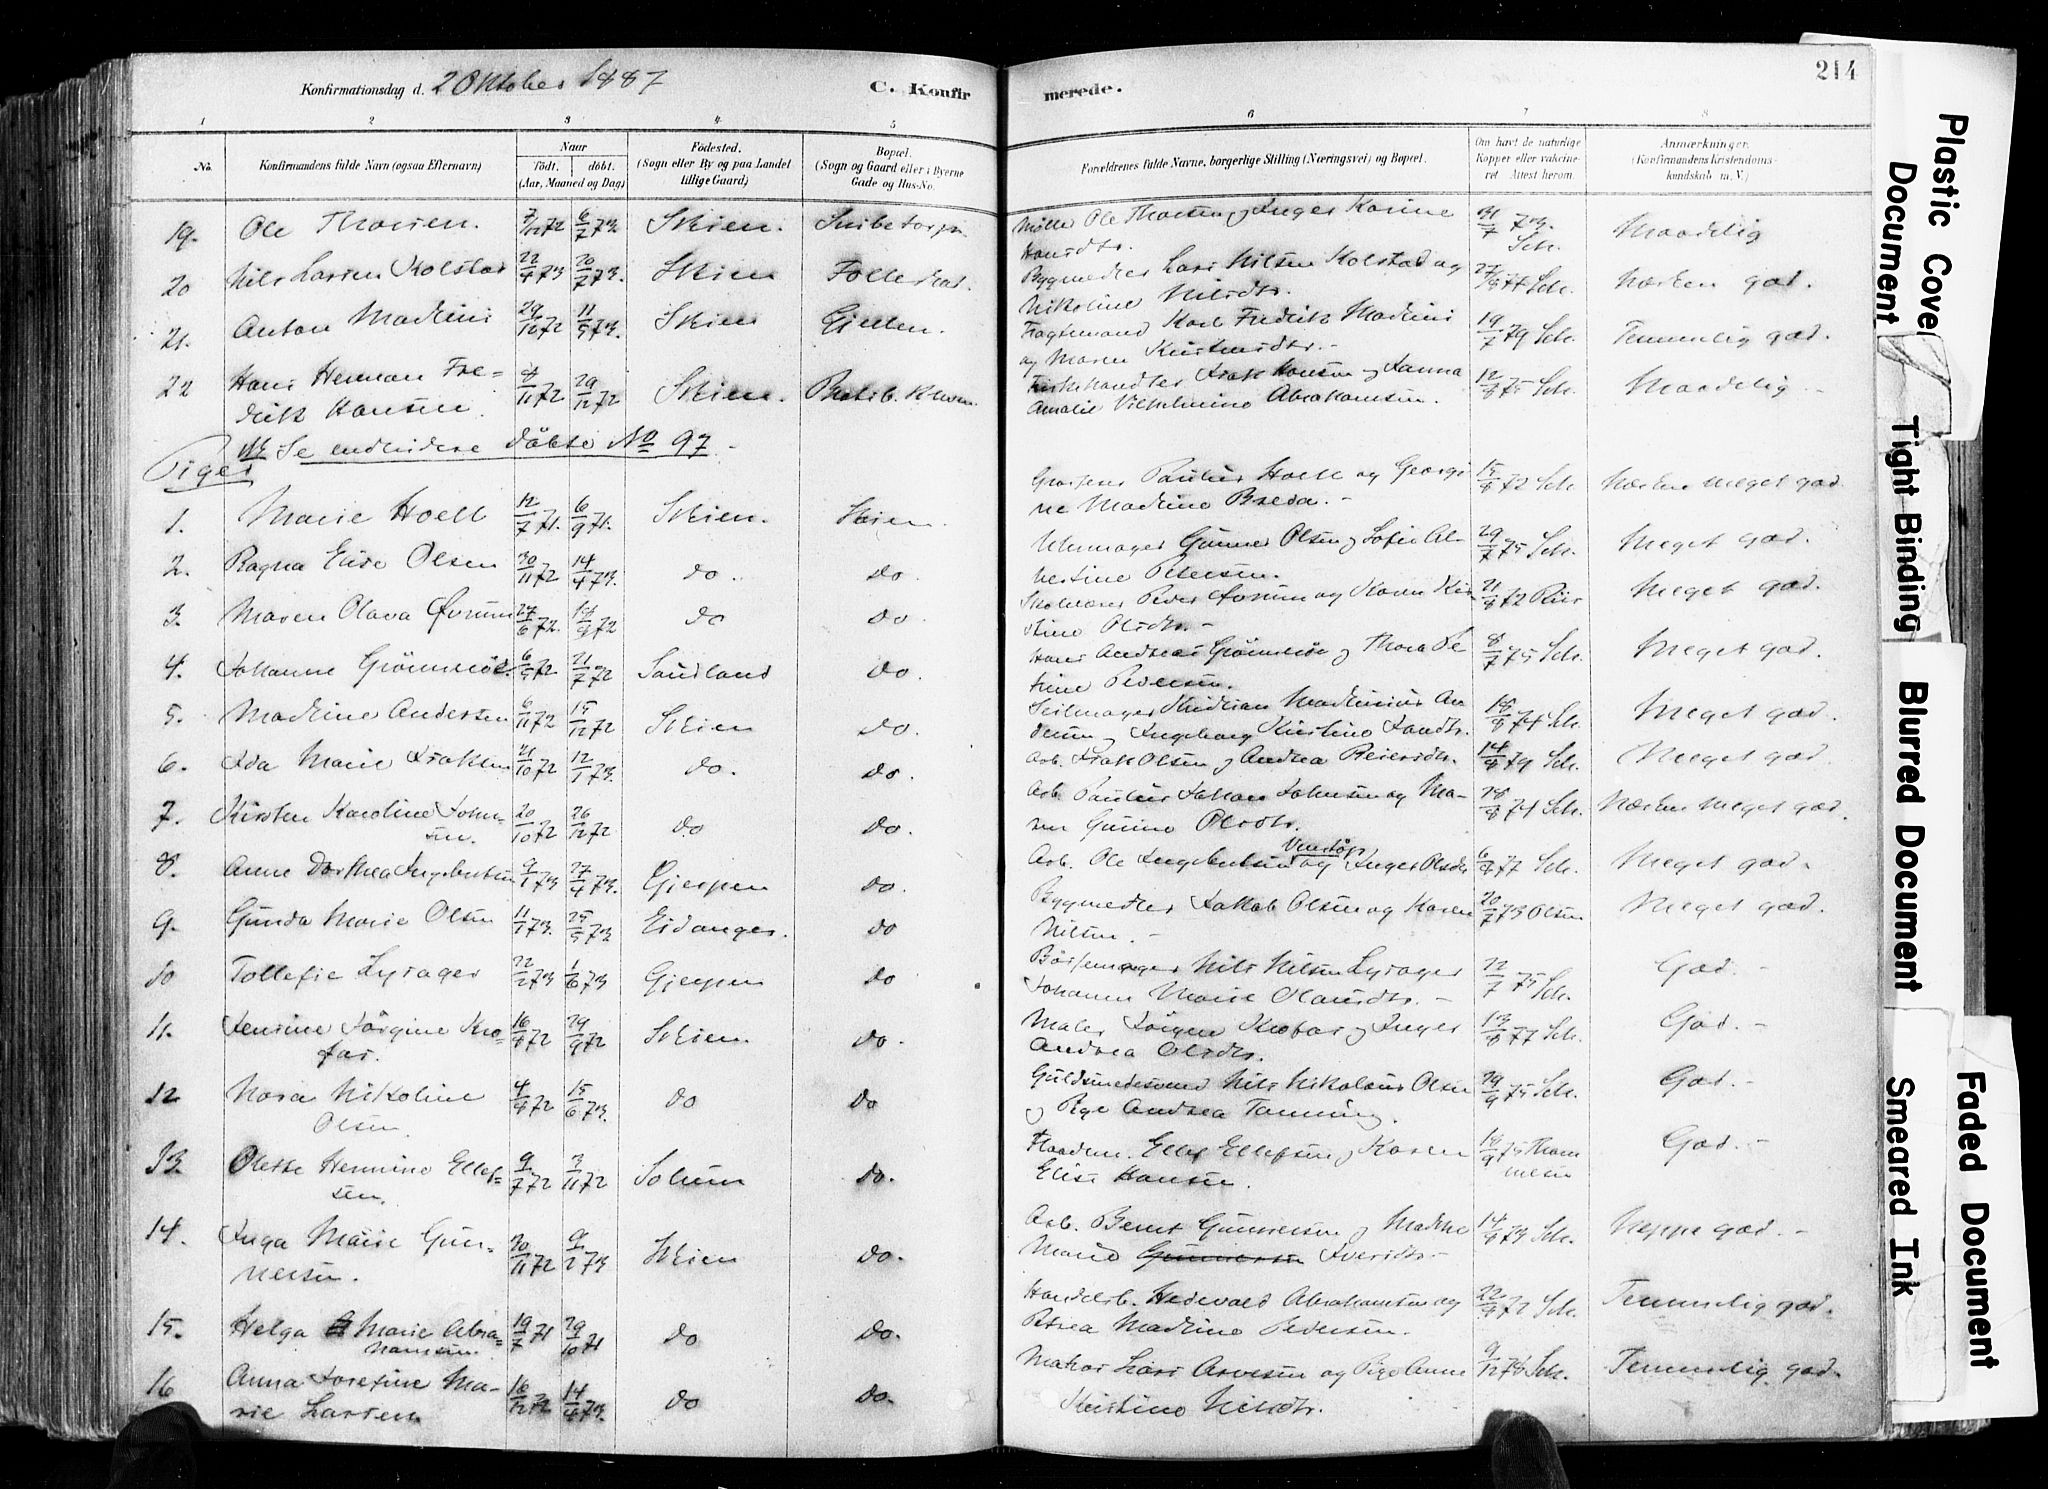 Konfirmationsdag d. 2 Oktober 1887
C. Konfirmerede.
214
1 2 3 4 5 6 7 8
No.
Konfirmandens fulde Navn (ogsaa Efternavn)
Naar
Födt. döbt.
(Aar, Maaned og Dag)
Födested.
(Sogn eller By og paa Landet
tillige Gaard)
Bopæl.
(Sogn og Gaard eller i Byerne
Gade og Hus-No.
Forældrenes fulde Navne, borgerlige Stilling (Næringsvei) og Bopæl.
Om havt de naturlige
Kopper eller vakcine-
ret Attest herom.
Anmærkninger.
(Konfirmandens kristendoms-
kundskab m. V.)
19. Ole Thorsen. 7/12 72 6/7 73 Skien. Maadelig
Hansdtr.
20 Nils Larsen Kolstad 22/4 73 20/7 73. Skien Bygmedler Lars Nilsen Kolstad og
Nikoline Nilsdtr. 27/9 Sch. Næsten god.
21. Anton 29/10 72 11/5 73 Skien Karl Fredrik
og Maren Kristensdtr. 19/7 79 Sch. Temmelig god.
22 Hans Herman Fre-
drik Hansen 8/11 72 29/12 72 Skien Fiskehandler Isak Hansen og
Amalie Vilhelmine Abrahamsen. 12/8 75 Sch. Maadelig
Se endvidere döbte No 97.
Piger
1. Marie Hoell 12/7 71. 6/9 71. Skien. Skien. Paulus Hoell og Georgi-
ne Breda. 15/8 72 Sch. Næsten meget god.
2. Ragna Elise Olsen 30/11 72 14/4 73. do. do. Uhrmager Gunner Olsen og Sofie Al-
bertine Petersen. 29/7 75 Sch. Meget god.
3. Maren Olava 24/6 72. 72 do do. Peder og Karen Kir-
stine Olsdtr. 21/8 72 Meget god.
4. Johanne 6/5 72 21/7 72 Sandland do. Hans Andreas og Thora
Pedersen. 8/7 75 Sch. Meget god.
5. Andersen 6/11 72 15/12 72 Skien do. Seilmager Kristian An-
dersen og Ingeborg Kirstine 18/8 74 Sch. Meget god.
6. Ida Marie Isaksen 21/10 72 12/1 73. do. do. Arb. Isak Olsen og Andrea Reiersdtr. 14/8 79 Sch. Meget god
7. Kirsten Karoline John-
sen. 20/10 72 26/12 72 do do. Arb. Paulus Johan Johnsen og Ma-
ren Gurine Olsdtr. 18/8 74 Sch. Næsten meget god.
8. Anne Dorthea Ingebretsen 9/1 73 27/4 73. Gjerpen do. Arb. Ole Ingebretsen Venstöp og Inger Olsdtr 6/8 77 Sch. Meget god.
9. Gunda Marie Olsen 11/1 73. 25/5 73 Eidanger. do Bygmedler Jakob Olsen og Karen
Nilsen. 20/7 73 Olsen Meget god.
10 Tollefie Lysager 22/2 73 1/6 73 Gjerpen do Börsemager Nils Nilsen Lysager
Johanne Marie Olausdtr. 12/7 75 Sch. God.
11. Jensine Jörgine Kro-
far. 16/8 72 29/9 72 Skien. do. Maler Jörgen Krofar og Inger
Andrea Olsdtr. 13/8 77 Sch. God.
12 Nora Nikoline
Olsen. 4/8 72 15/6 73. do do Guldsmedsvend Nils Nikolaus Olsen
og Pige Andrea Tanning. 29/9 75 Sch. God.
13 Olette Hermine Ellef-
sen. 9/7 72 3/11 72 Solum do. Ellef Ellefsen og Karen
Elise Hansen. 18/9 75 Thom-
mesen God.
14. Inga Marie Gun-
nersen. 20/11 72 9/2 73 Skien do. Arb. Bernt Gunnersen og
Marie Gunnersen Iversdtr. 14/8 73 Sch. Neppe god.
15. Helga Marie Abra-
hamsen. 19/7 71 29/10 71 do do. Handelsb. Abrahamsen og
Petrea Pedersen. 22/8 72 Sch. Temmelig god.
16 Anna Josefine Ma-
rie Larsen 16/12 72 14/4 73. do do. Lars og Pige Anne
Kristine 9/12 78 Sch. Temmelig god.
Plastic Cove
Document
Tight Binding
Blurred Document
Faded Document
Smeared Ink